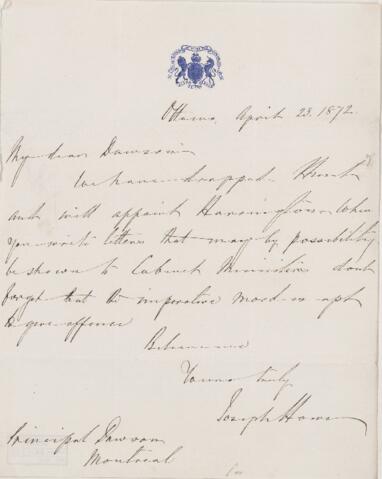 Ottawa, April 23. 1872.
My dear Dawson
We have dropped Hunt
and will appoint Harrington. When
you write letters that may by possibility
be shown to Cabinet Ministers dont
forget that the imperative mood is apt
to give offence
Believe me
Yours truly
Joseph Howe
Principal Dawson
Montreal